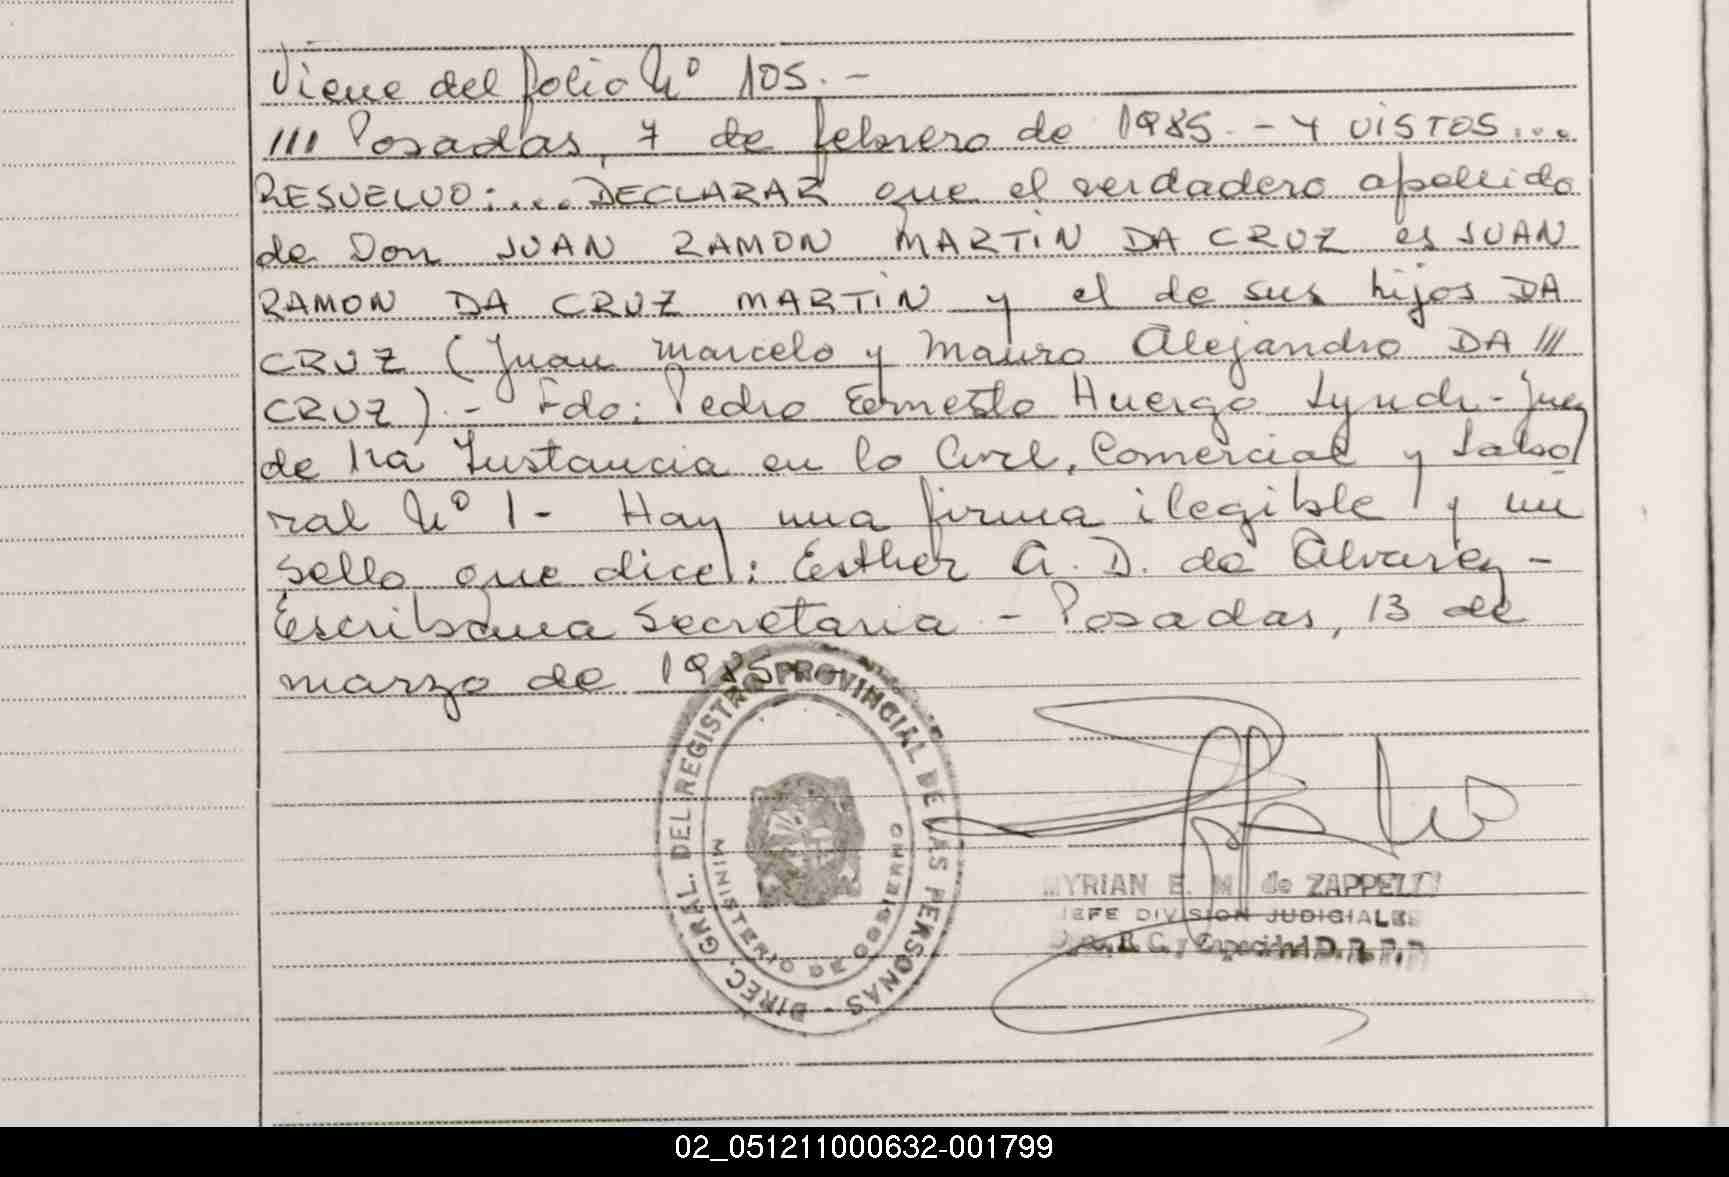 Viene del folio Nº 105.-
/// Posadas, 7 de febrero de 1985.- Y VISTOS...
RESUELVO:... DECLARAR que el verdadero apellido
de Don JUAN RAMON MARTIN DA CRUZ es JUAN
RAMON DA CRUZ MARTIN y el de sus hijos DA
CRUZ (Juan Marcelo y Mauro Alejandro DA ///
CRUZ).- Fdo: Pedro Ernesto Huergo Lynch-Juez
de 1ra Instancia en lo Civil, Comercial y Labo
ral Nº 1- Hay una firma ilegible y un
sello que dice: Esther A. D. de Alvarez-
Escribana Secretaria - Posadas, 13 de
marzo de 1985
DIREC. GRAL. DEL REGISTRO PROVINCIAL DE LAS PERSONAS -
MINISTERIO DE GOBIERNO
MYRIAN E. M. de ZAPPELLI
JEFE DIVISION JUDICIALES
R. C. y Capacidad D. R. P. P.
02_051211000632-001799